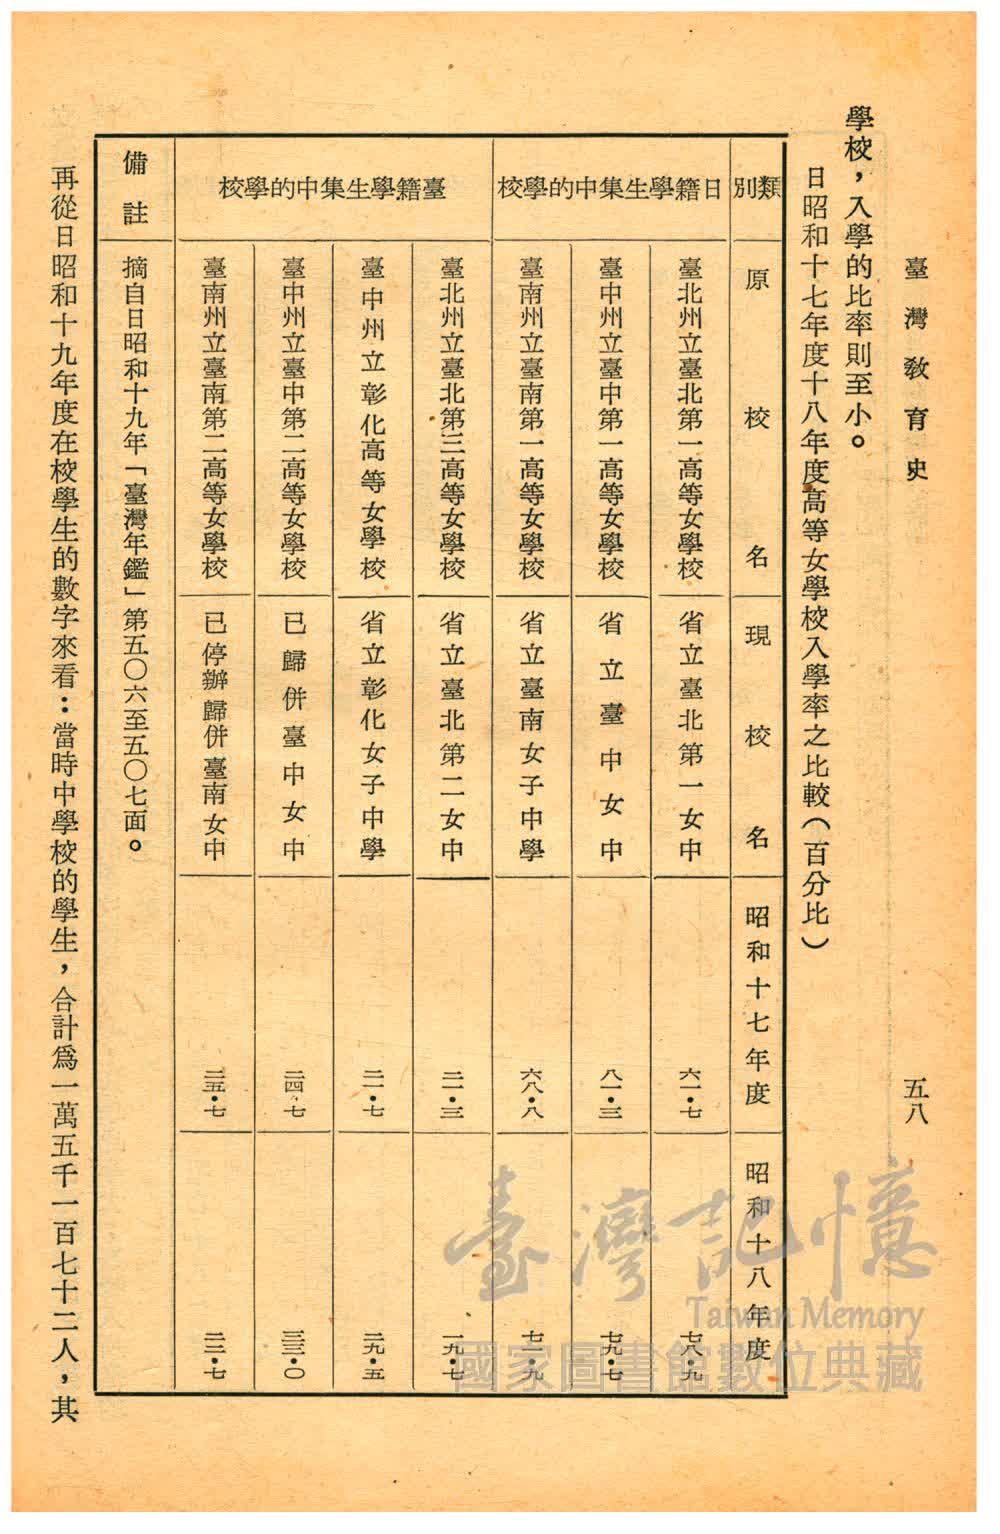 臺灣教育史
五八
學校，入學的比率則至小。
日昭和十七年度十八年度高等女學校入學率之比較（百分比）
類別
原校名
現校名
昭和十七年度
昭和十八年度
日籍學生集中的學校
臺北州立臺北第一高等女學校
省立臺北第一女中
六一・七
七八・九
臺中州立臺中第一高等女學校
省立臺中女中
八一・三
七九・七
臺南州立臺南第一高等女學校
省立臺南女子中學
六八・八
七一・九
臺籍學生集中的學校
臺北州立臺北第三高等女學校
省立臺北第二女中
二一・三
一九・七
臺中州立彰化高等女學校
省立彰化女子中學
二一・七
二九・五
臺中州立臺中第二高等女學校
已歸併臺中女中
二四・七
三三・〇
臺南州立臺南第二高等女學校
已停辦歸併臺南女中
二五・七
備註
摘自日昭和十九年「臺灣年鑑」第五〇六至五〇七面。
再從日昭和十九年度在校學生的數字來看：當時中學校的學生，合計爲一萬五千一百七十二人，其
臺灣記憶
Taiwan Memory
國家圖書館數位典藏